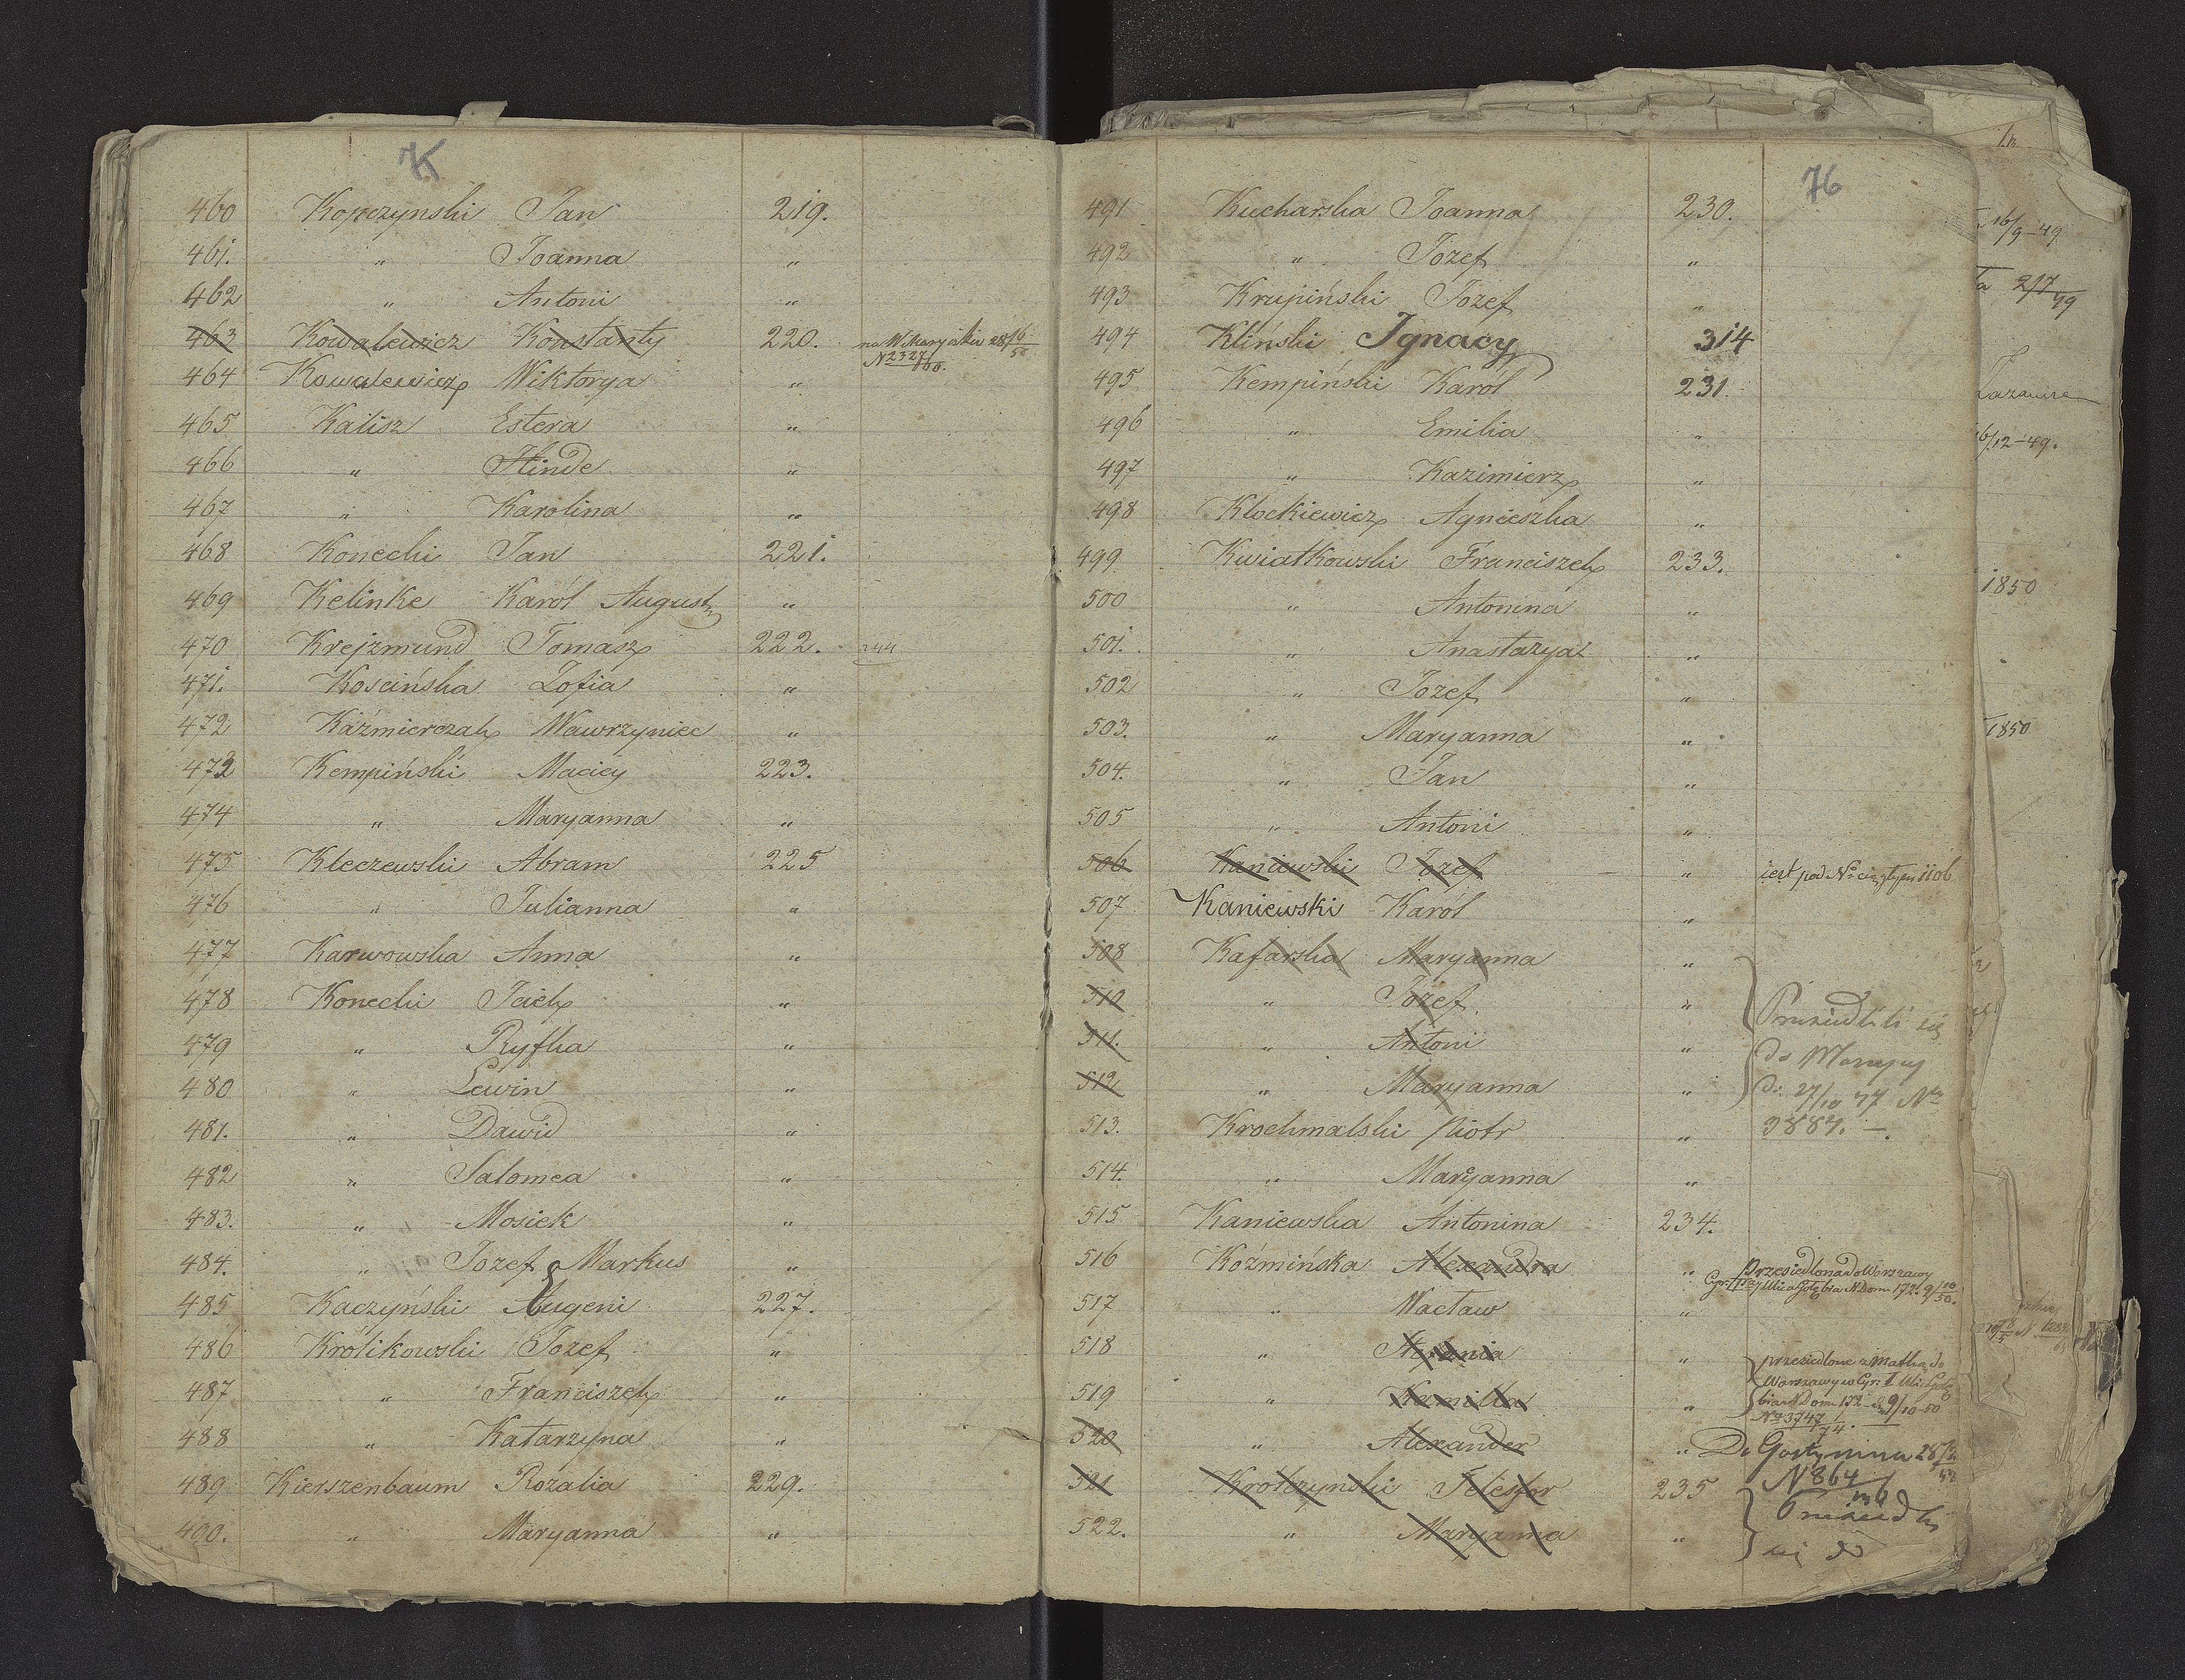 K
460 Kopczynski Jan 219.
461. " Joanna "
462 " Antoni "
463 Kowalewicz Konstanty 220. na W. 28/6 50
N 2327/60.
464 Kowalewicz Wiktorya "
465 Kalisz Estera "
466 " Hinde "
467 " Karolina "
468 Konecki Jan 221.
469 Kelinke Karól August "
470 Krejzmund Tomasz 222. 244
471. Koscińska Zofia "
472 Kaźmierczak Wawrzyniec "
473 Kempiński Maciey 223.
474 " Maryanna "
475 Kleczewski Abram 225
476 " Julianna "
477 Karwowska Anna "
478 Konecki Iciek "
479 " Ryfka "
480 " Lewin "
481. " Dawid "
482 " Salomea "
483. " Mosiek "
484. " Jozef Markus "
485 Kaczyński Eugeni 227.
486 Królikowski Jozef "
487 " Franciszek "
488 " Katarzyna "
489 Kierszenbaum Rozalia 229.
490. " Maryanna "
76
491 Kucharska Joanna 230.
492 " Józef "
493 Krupiński Józef "
494 Kliński Ignacy 314
495 Kempiński Karól 231.
496 " Emilia "
497 " Kazimierz "
498 Klockiewicz Agnieszka "
499 Kwiatkowski Franciszek 233.
500 " Antonina "
501. " Anastazya "
502 " Jozef "
503. " Maryanna "
504. " Jan "
505 " Antoni "
506 Kaniewski Jozef " iest pod No 1106
507 Kaniewski Karól "
508 Kafarska Maryanna "
510 " Józef "
Przesiedlili się
511. " Antoni "
do
512 " Maryanna "
d. 27/10 47 No
513. Krochmalski Piotr "
3887. -.
514. " Maryanna "
515 Kaniewska Antonina 234.
516 Koźmińska Alexandra " Przesiedlona do Warszawy
Cyr: Ulica Gołębia N Dom 172. 9/10 50.
517 " Wacław "
518 " Stefania "
przesiedlone z Matką do
Warszawy w Cyr: I Uli: Gołę
519 " Kamilla "
bia N Dom 172 - 9/10-50
No 3747/74.
520 " Alexander " Do Gostynina 28/2 52
N 864
521 Krótczynski Telesfor 235
522. " Maryanna "
się do
16/9-49
ta 2/7 49
16/12-49.
1850
1850